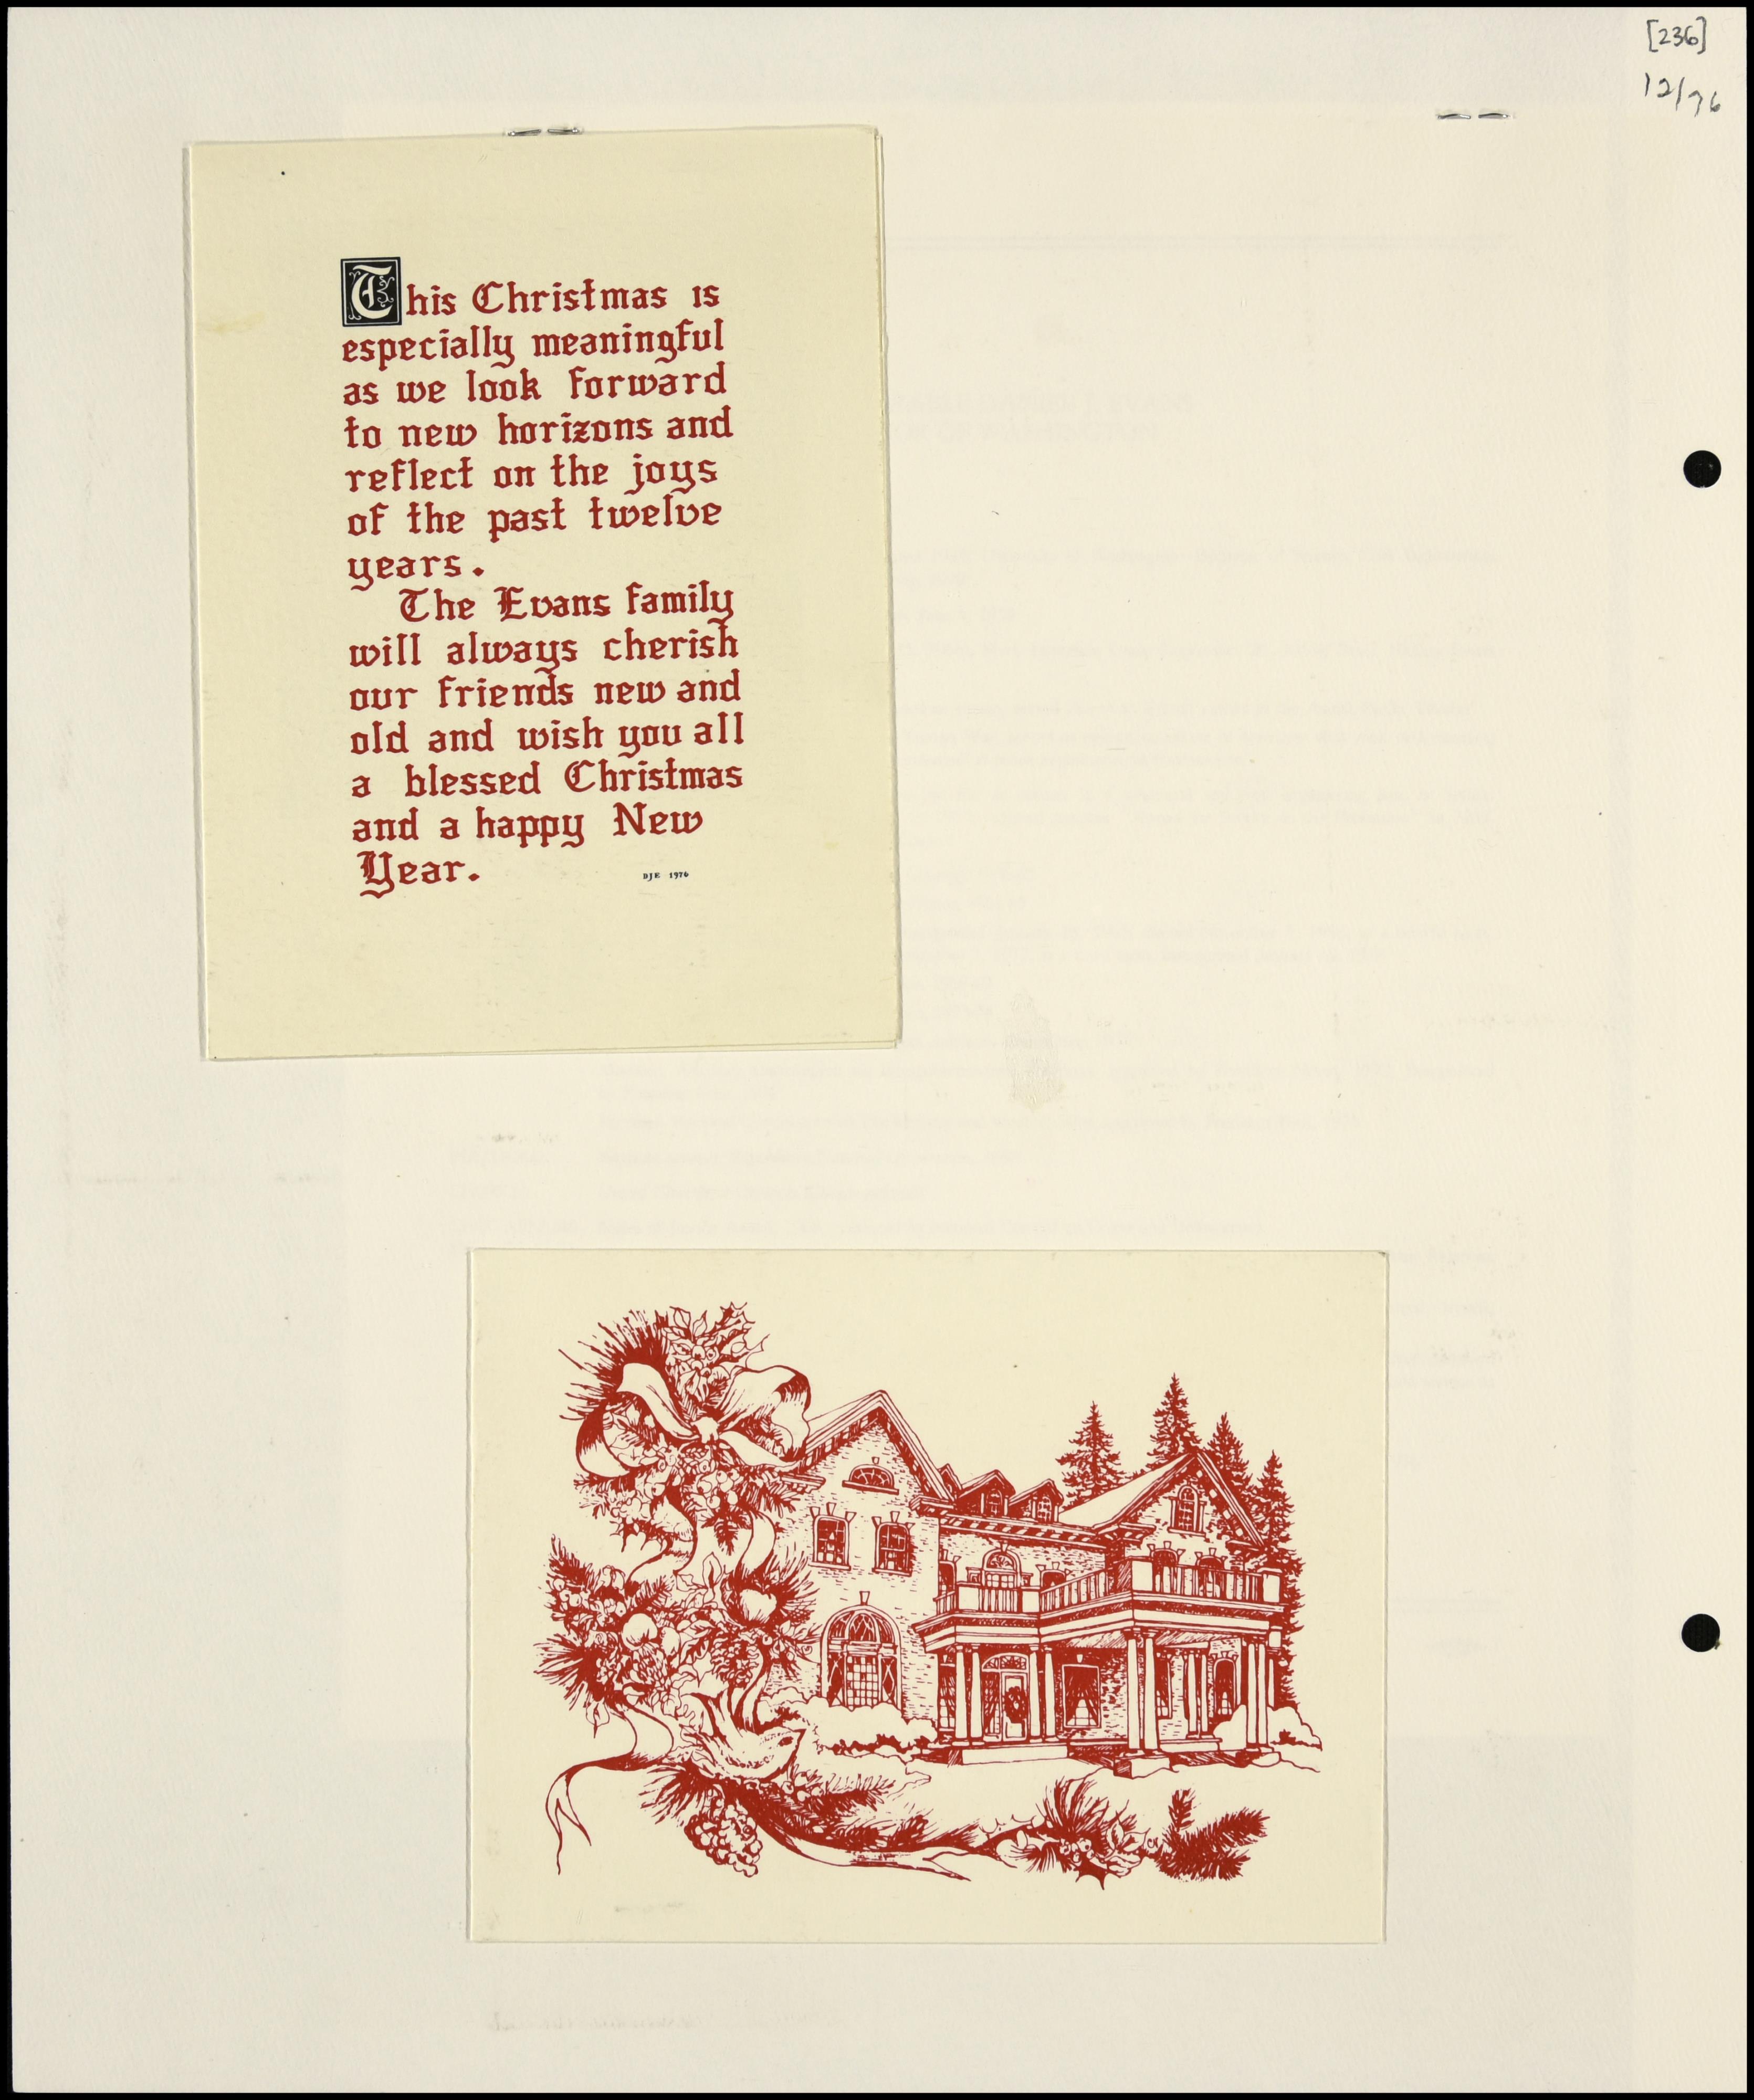 [236]
12/76
This Christmas is
especially meaningful
as we look forward
to new horizons and
reflect on the joys
of the past twelve
years.
The Evans family
will always cherish
our friends new and
old and wish you all
a blessed Christmas
and a happy New
Year.
DJE 1976